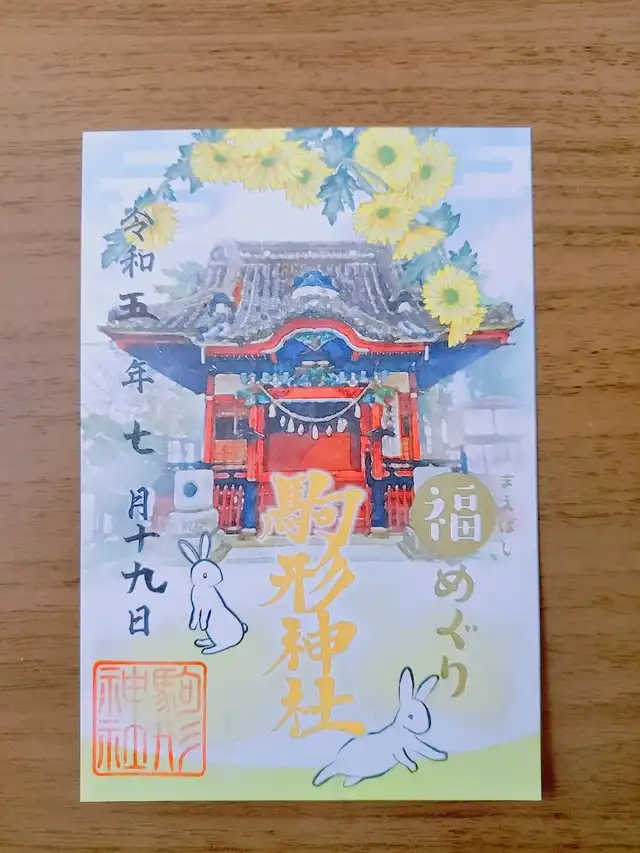 まえばし
福めぐり
駒形神社
令和五年七月十九日
駒形
神社